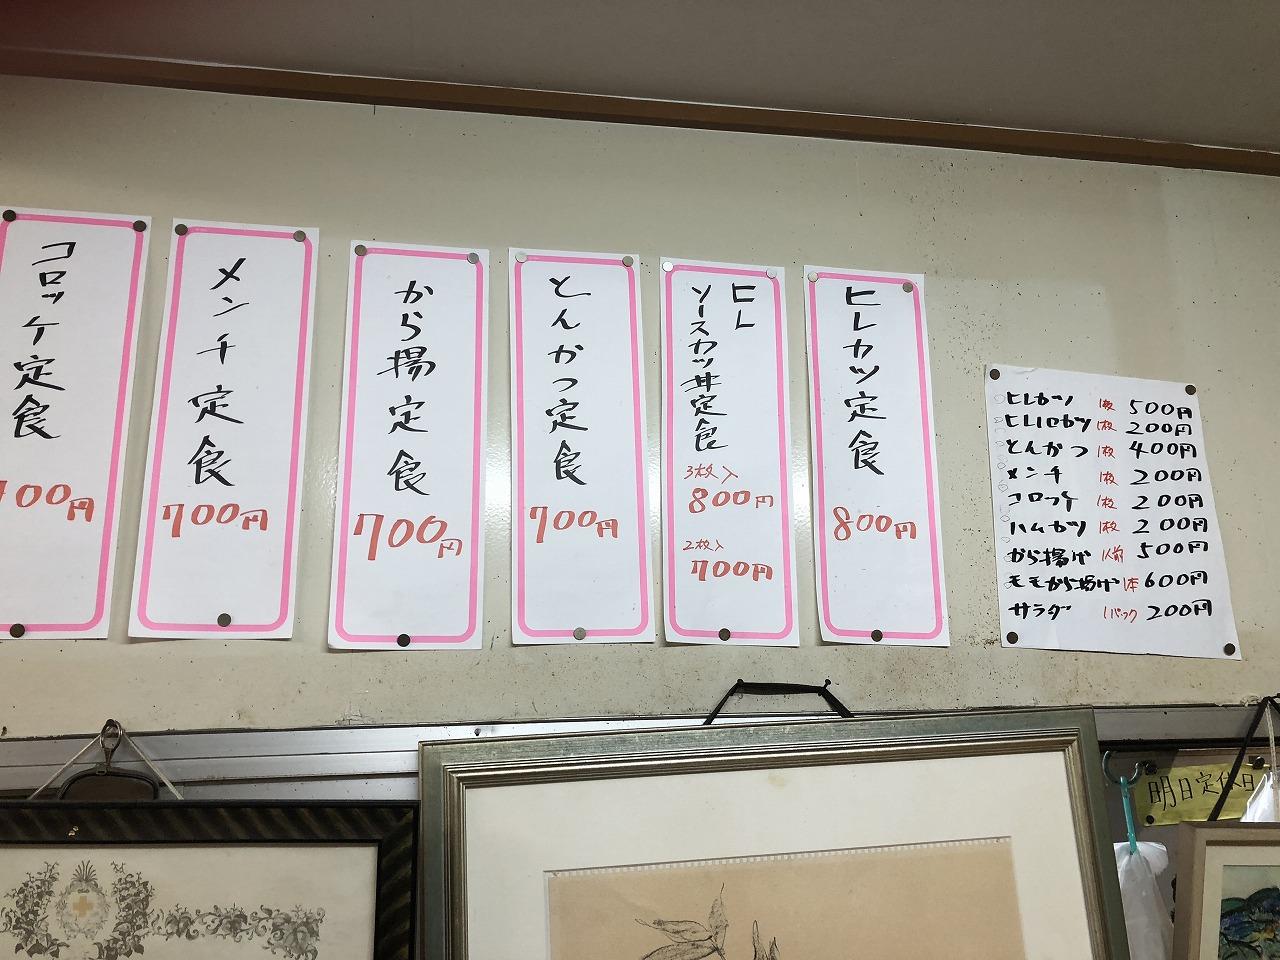 コロッケ定食
700円
メンチ定食
700円
から揚定食
700円
とんかつ定食
700円
ヒレ
ソースカツ丼定食
3枚入
800円
2枚入
700円
ヒレカツ定食
800円
ヒレカツ 1枚 500円
ヒレ一口カツ 1枚 200円
とんかつ 1枚 400円
メンチ 1枚 200円
コロッケ 1枚 200円
ハムカツ 1枚 200円
から揚げ 1人前 500円
モモから揚げ 1本 600円
サラダ 1パック 200円
明日定休日